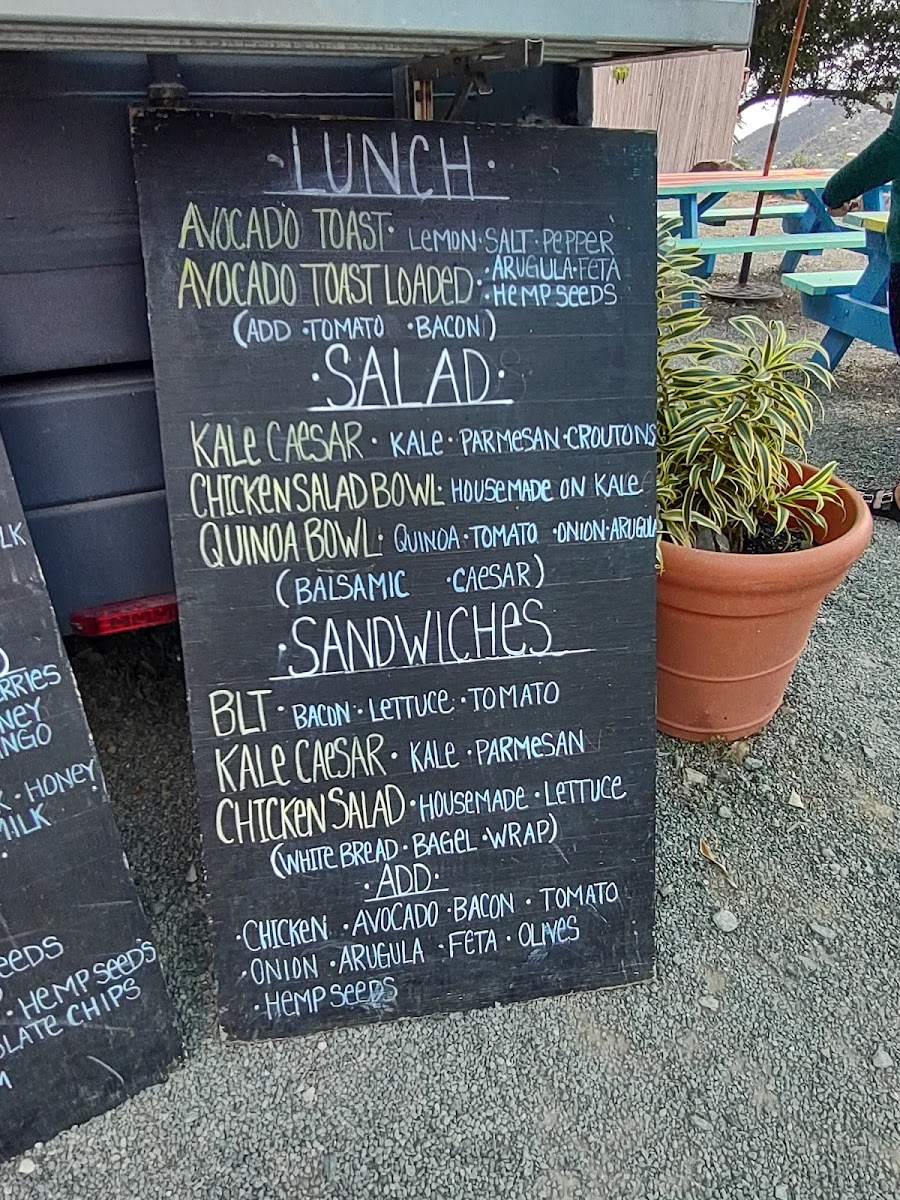 ·LUNCH·
AVOCADO TOAST· LEMON·SALT·PEPPER
AVOCADO TOAST LOADED ·ARUGULA·FETA
·HEMP SEEDS
(ADD ·TOMATO ·BACON)
·SALAD·
KALE CAESAR· KALE·PARMESAN·CROUTONS
CHICKEN SALAD BOWL· HOUSEMADE ON KALE
QUINOA BOWL· QUINOA·TOMATO ·ONION·ARUGULA
(BALSAMIC ·CAESAR)
·SANDWICHES·
BLT· BACON·LETTUCE·TOMATO
KALE CAESAR· KALE·PARMESAN
CHICKEN SALAD·HOUSEMADE·LETTUCE
(WHITE BREAD·BAGEL·WRAP)
·ADD·
·CHICKEN ·AVOCADO·BACON·TOMATO
·ONION·ARUGULA·FETA·OLIVES
·HEMP SEEDS
LK
RRIES
NEY
NGO
·HONEY
MILK
EEDS
·HEMP SEEDS
LATE CHIPS